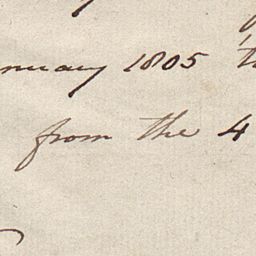 nuary 1805 t
from the 4